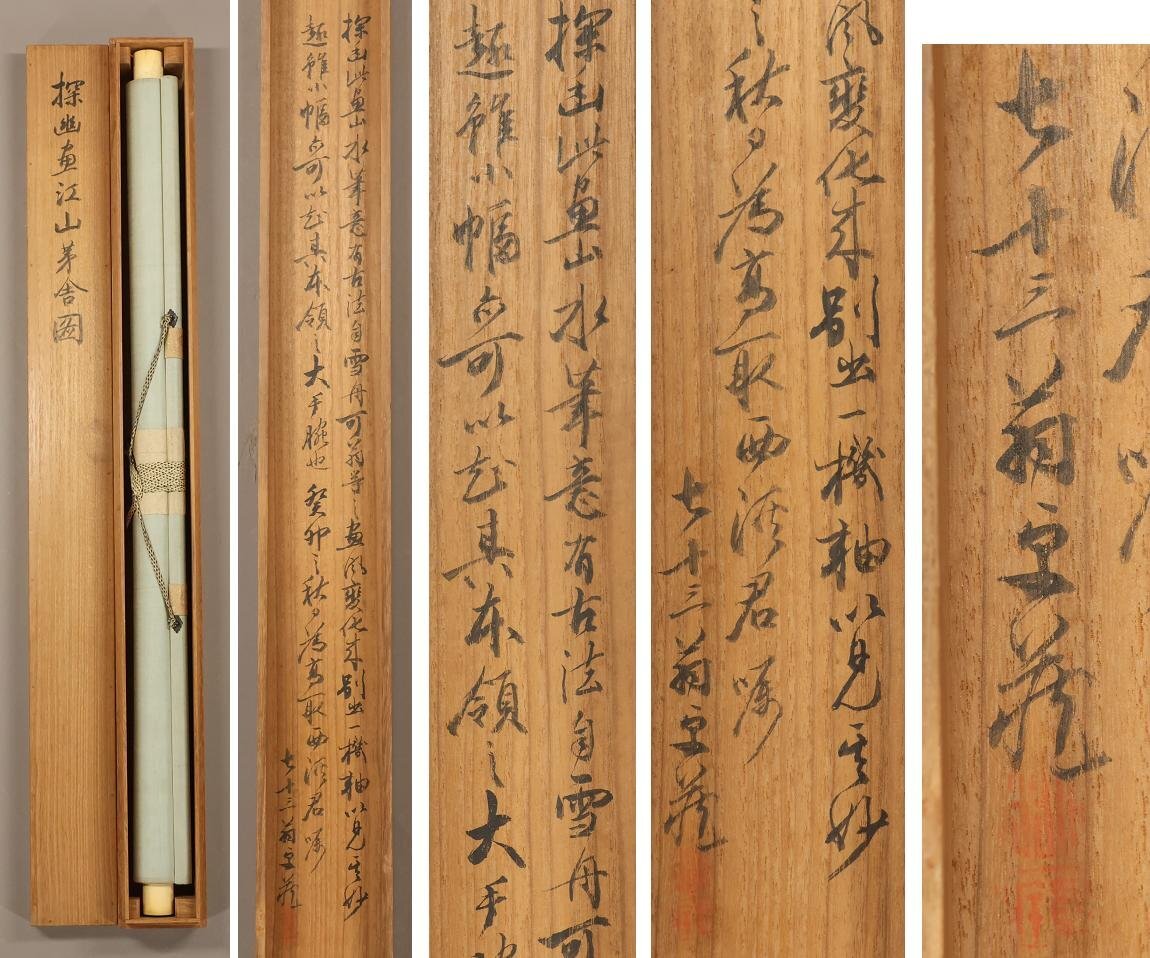 探幽画江山茅舎図
探幽此画山水筆意有古法自雪舟可翁等之画風変化来別出一機軸以見其妙
趣雖小幅亦可以知其本領之大手腕也 癸卯之秋日為高取西渓君嘱
七十三翁
探幽此画山水筆意有古法自雪舟可
趣雖小幅亦可以知其本領之大手
風変化来別出一機軸以見其妙
之秋日為高取西渓君嘱
七十三翁
七十三翁